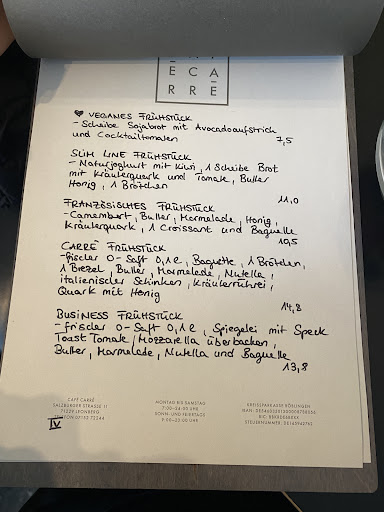 E CA
R RÉ
♥ VEGANES FRÜHSTÜCK
- Scheibe Sojabrot mit Avocadoaufstrich
und Cocktailtomaten 7,5
SLIM LINE FRÜHSTÜCK
- Naturjoghurt mit Kiwi, 1 Scheibe Brot
mit Kräuterquark und Tomate, Butter
Honig, 1 Brötchen 11,0
FRANZÖSISCHES FRÜHSTÜCK
- Camembert, Butter, Marmelade, Honig,
Kräuterquark, 1 Croissant und Baguette
10,5
CARRÉ FRÜHSTÜCK
- frischer O-Saft 0,1 l, Baguette, 1 Brötchen,
1 Brezel, Butter, Marmelade, Nutella,
italienischer Schinken, Kräuterrührei,
Quark mit Honig
14,8
BUSINESS FRÜHSTÜCK
- frischer O-Saft 0,1 l, Spiegelei mit Speck
Toast Tomate/Mozzarella überbacken,
Butter, Marmelade, Nutella und Baguette
13,8
CAFÉ CARRÉ
SALZBURGER STRASSE 11
71229 LEONBERG
MONTAG BIS SAMSTAG
7:00–24:00 UHR
SONN- UND FEIERTAGS
9:00–23:00 UHR
KREISSPARKASSE BÖBLINGEN
IV